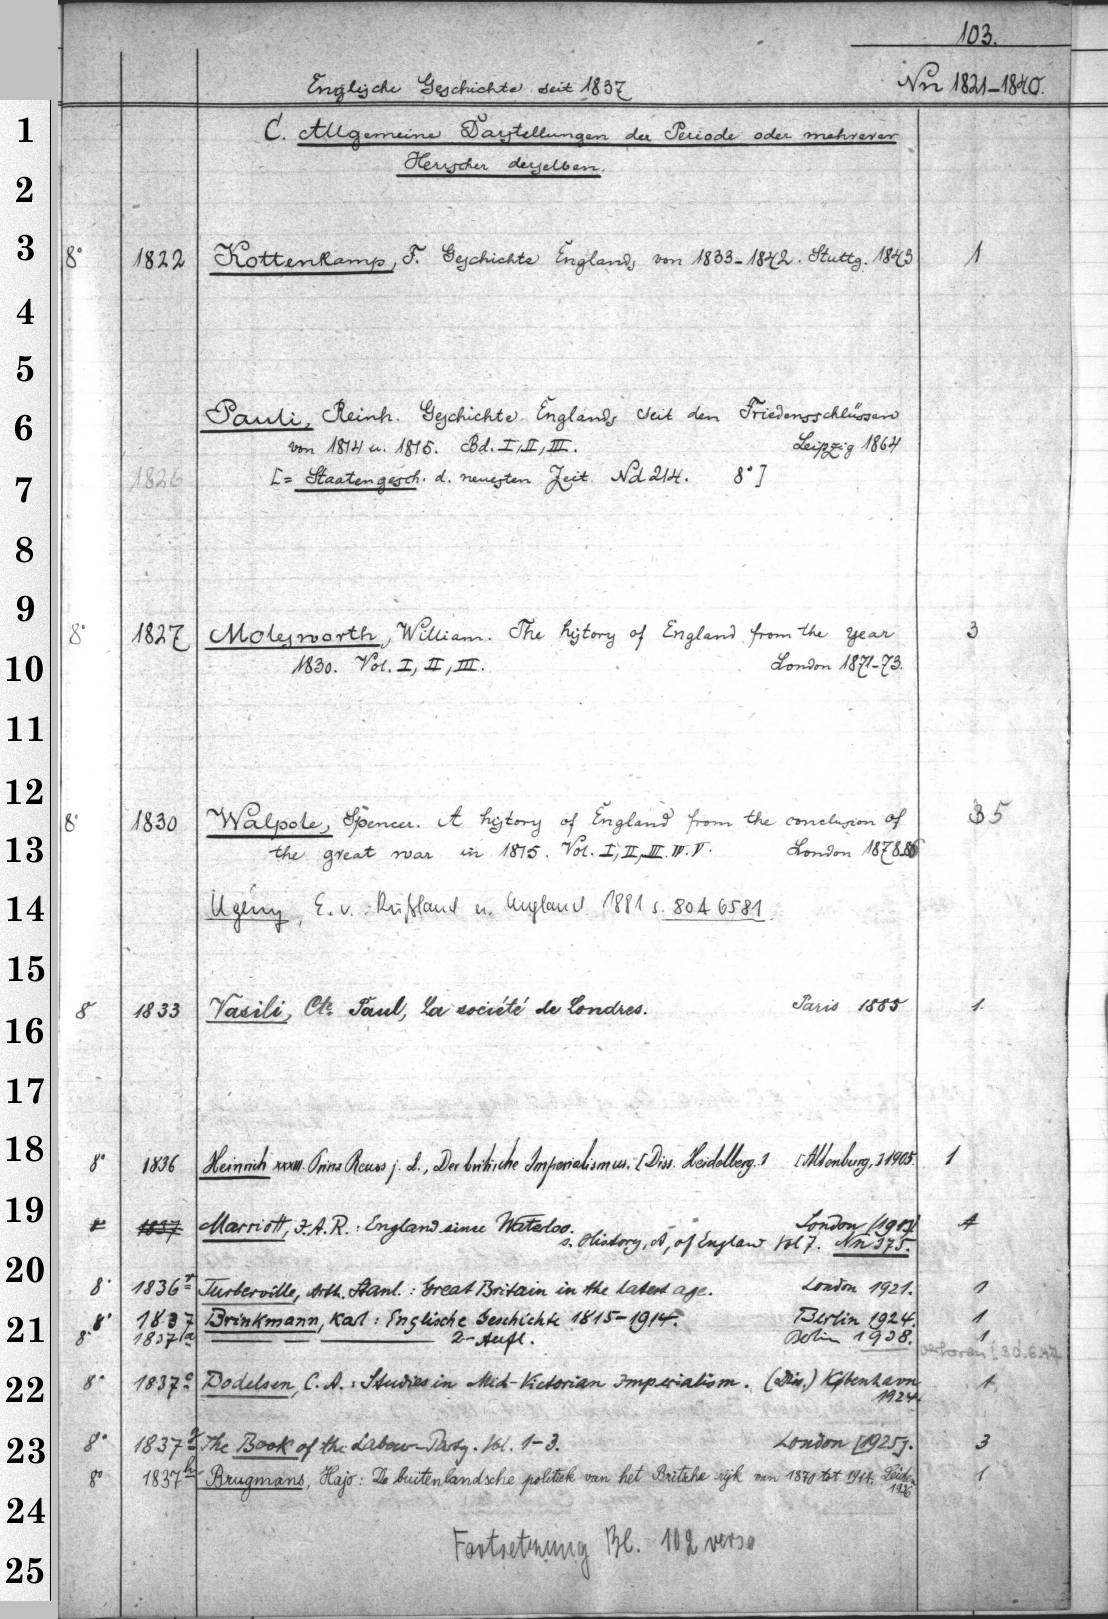 103.
Englische Geschichte seit 1837 Nn 1821-1840.
C. Allgemeine Darstellungen der Periode oder mehrerer
Herrscher derselben.
8° 1822 Kottenkamp, F. Geschichte Englands von 1833-1842. Stuttg. 1843 1
Pauli, Reinh. Geschichte Englands seit den Friedensschlüssen
von 1814 u. 1815. Bd. I, II, III. Leipzig 1864
1826 [= Staatengesch. d. neuesten Zeit Nd 214. 8°]
8° 1827 Molesworth, William. The history of England from the year 3
1830. Vol. I, II, III. London 1871-73.
8° 1830 Walpole, Spencer. A history of England from the conclusion of 3 5
the great war in 1815. Vol. I, II, III. IV. V. London 1878.86
Ugény, E. v.: Rußland u. England 1881 s. 804 6581
8 1833 Vasili, Cte Paul, La société de Londres. Paris 1885 1.
8° 1836 Heinrich XXXIII. Prinz Reuss j. L., Der britische Imperialismus. [Diss. Heidelberg.] [Altenburg,] 1905. 1
8° 1837 Marriott, J. A. R.: England since Waterloo. London [19 1
s. History, A, of England Vol 7. Nn 375.
8° 1836 Turberville, Arth. Stanl.: Great Britain in the latest age. London 1921. 1
8° 1837 Brinkmann, Karl: Englische Geschichte 1815-1914. Berlin 1924. 1
8° 1837a — — — 2. Aufl. Berlin 1938. 1
verloren [30.6.47
8° 1837e Dodelsen, C. A.: Studies in Mid-Victorian Imperialism. (Diss.) København 1
1924.
8° 1837g The Book of the Labour-Party. Vol. 1-3. London [1925]. 3
8° 1837h Brugmans, Hajo: De buitenlandsche politiek van het Britsche rijk van 1870 tot 1914. Leiden 1
1926
Fortsetzung Bl. 102 verso
1
2
3
4
5
6
7
8
9
10
11
12
13
14
15
16
17
18
19
20
21
22
23
24
25